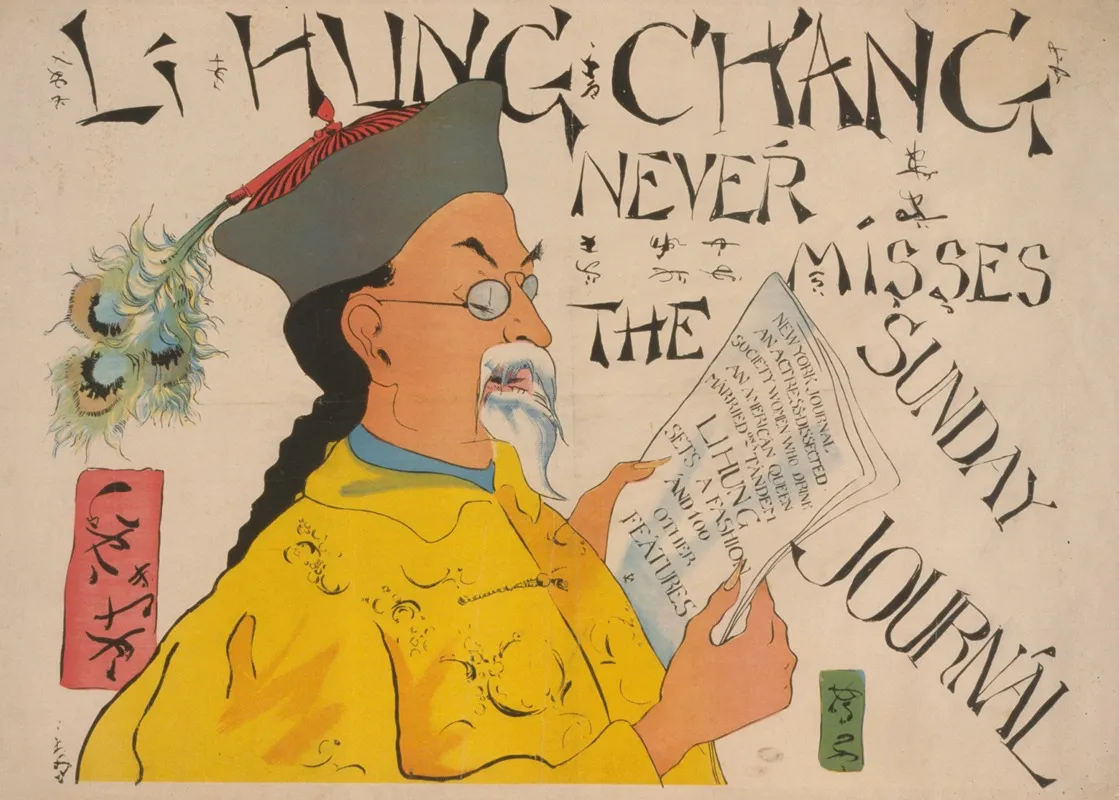 Li HUNG CHANG
NEVER
MISSES
THE
SUNDAY
JOURNAL
NEW YORK JOURNAL
AN ACTRESS DISSECTED
SOCIETY WOMEN WHO DRINK
AN AMERICAN QUEEN
MARRIED ON A TANDEM
LI HUNG
SETS A FASHION
AND 100
OTHER
FEATURES